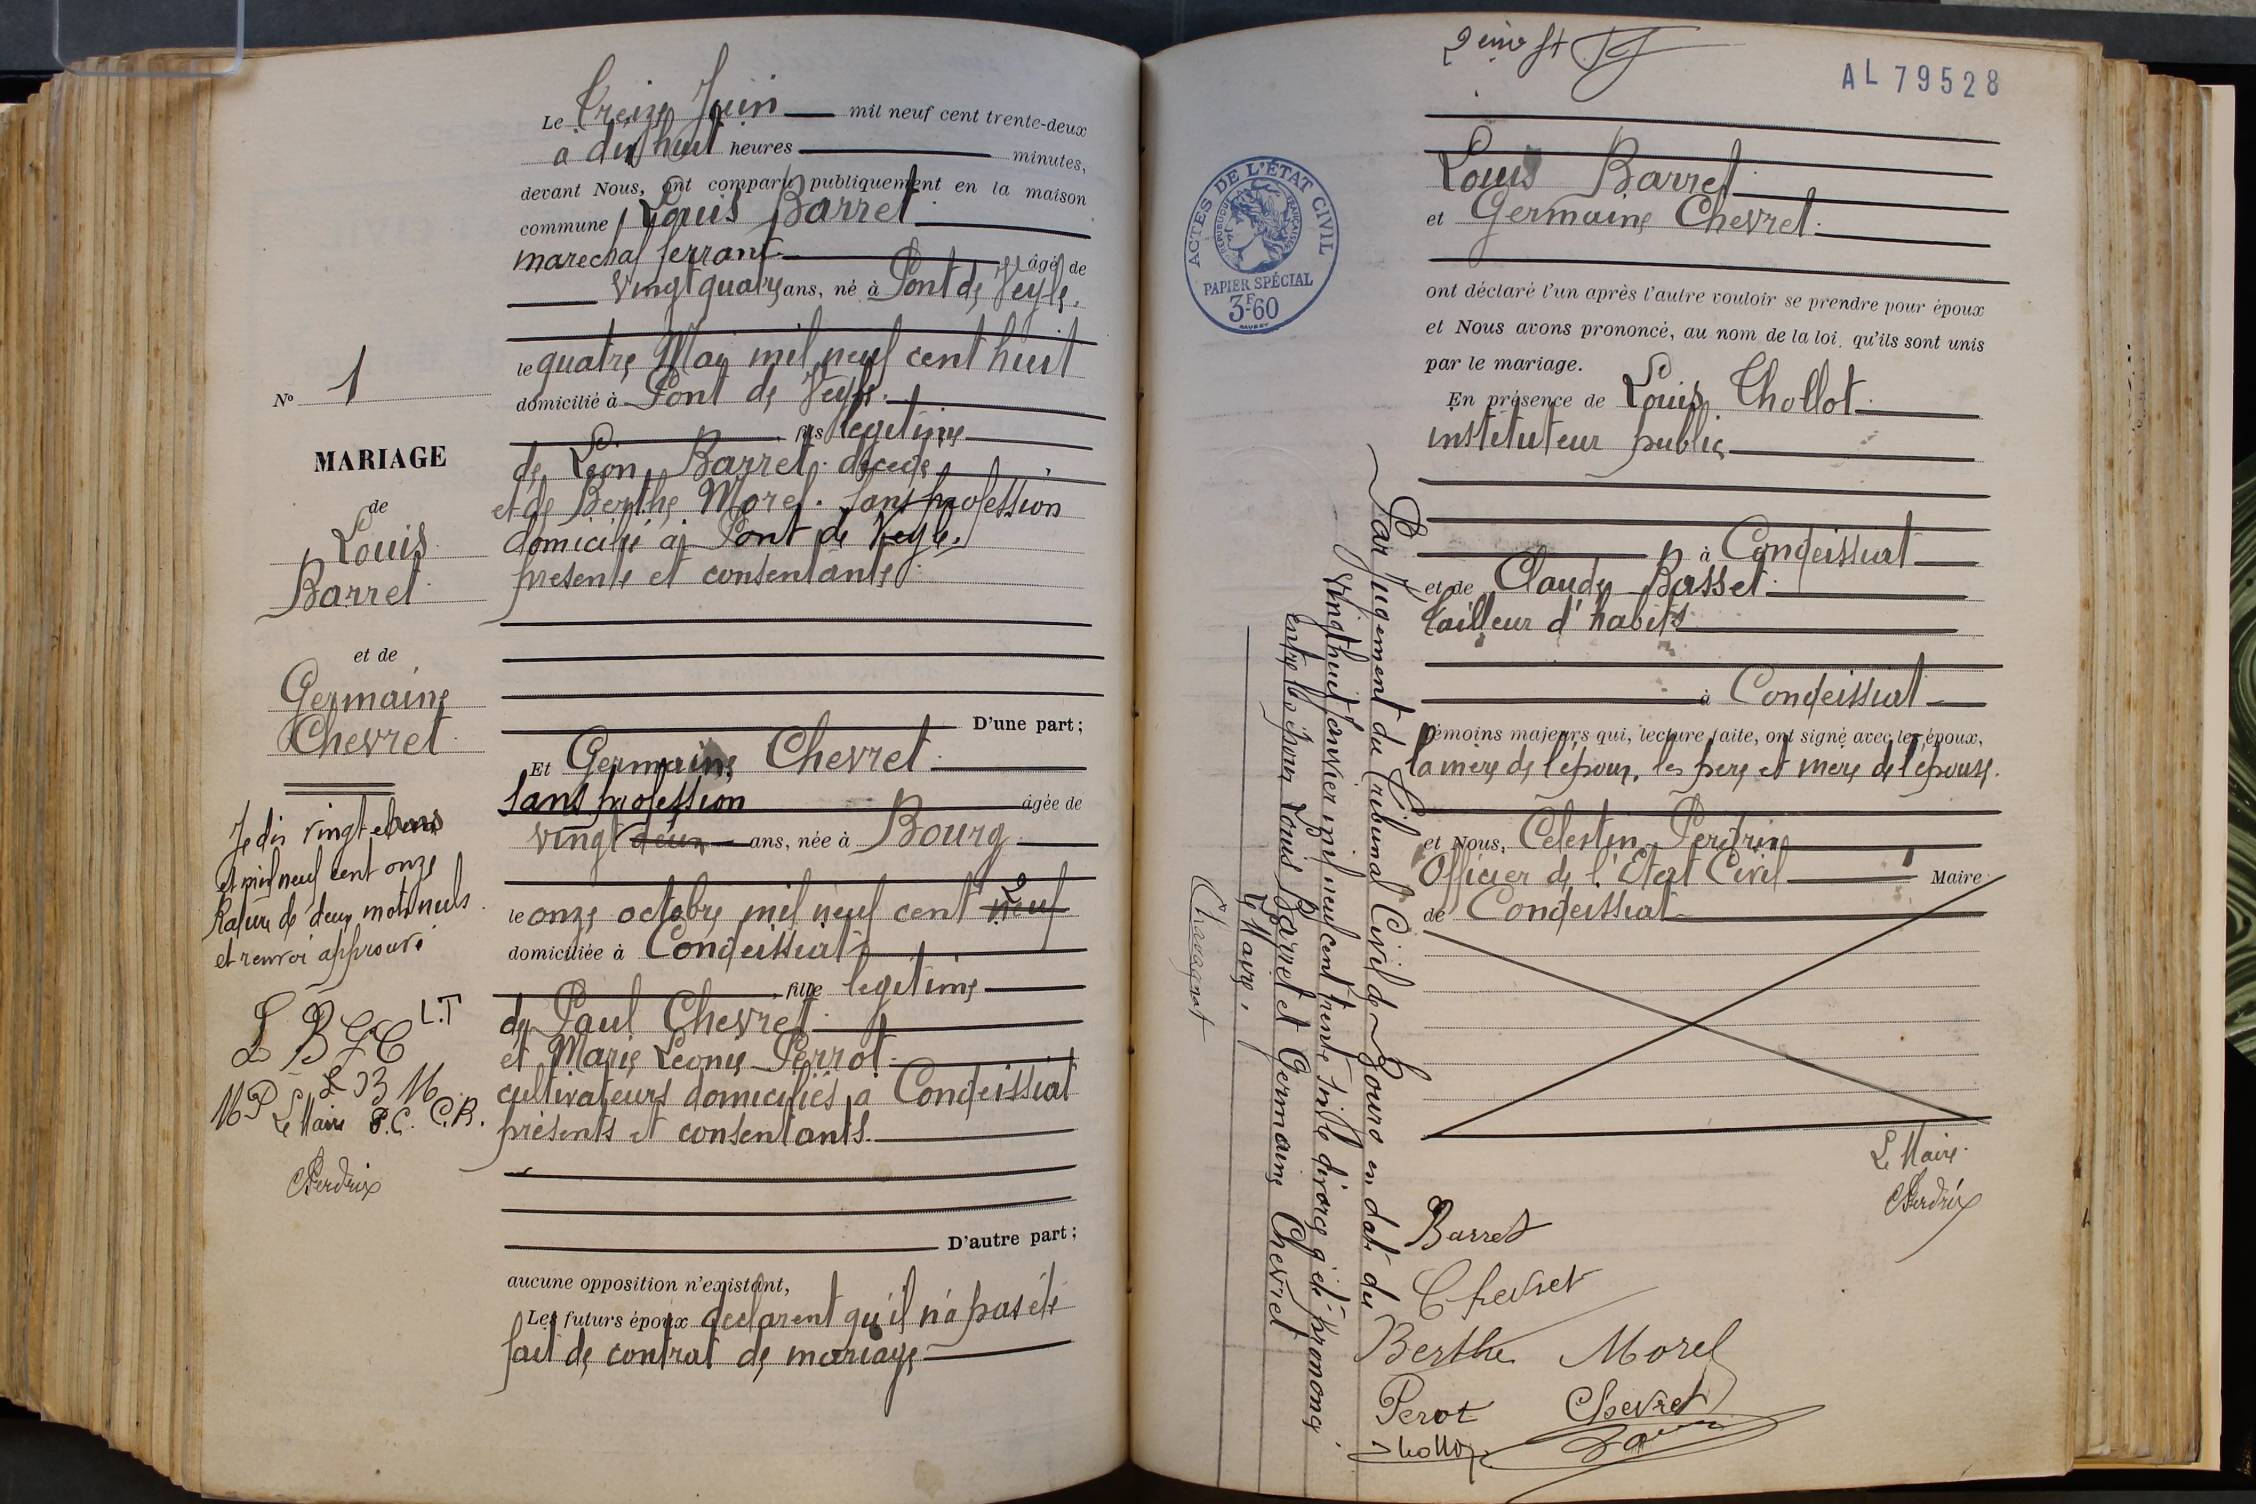 Le treize Juin mil neuf cent trente-deux
à dix huit heures minutes,
devant Nous, ont comparu publiquement en la maison
commune Louis Barret
marechal ferrant âgé de
vingt quatre ans, né à Pont de Veyle.
le quatre Mai mil neuf cent huit
domicilié à Pont de Veyle.
fils légitime
de Léon Barret. décédé
et de Berthe Morel. sans profession
domiciliée à Pont de Veyle.
présente et consentante.
D'une part;
Et Germaine Chevret
sans profession âgée de
vingt deux ans, née à Bourg
le onze octobre mil neuf cent neuf
domiciliée à Condeissiat
fille légitime
de Paul Chevret
et Marie Leonie Perrot
cultivateurs domiciliés à Condeissiat
présents et consentants.
D'autre part;
aucune opposition n'existant,
Les futurs époux declarent qu'il n'a pas été
fait de contrat de mariage
No 1
MARIAGE
de
Louis
Barret
et de
Germaine
Chevret
Je dis vingt
et mil neuf cent onze
Rature de deux mots nuls
et renvoi approuvé
L B G C L.T
M P L B M
Le Maire P.C. C.B.
CPerdrix
AL 79528
ACTES DE L'ÉTAT CIVIL
RÉPUBLIQUE FRANÇAISE
PAPIER SPÉCIAL
3F60
Louis Barret
et Germaine Chevret.
ont déclaré l'un après l'autre vouloir se prendre pour époux
et Nous avons prononcé, au nom de la loi, qu'ils sont unis
par le mariage.
En présence de Louis Thollot
instituteur public
à Condeissiat
et de Claudy Basset
tailleur d'habits
à Condeissiat
témoins majeurs qui, lecture faite, ont signé avec les époux,
la mère de l'époux, les père et mère de l'épouse.
et Nous, Celestin Perdrix
Officier de l'Etat Civil Maire
de Condeissiat
Le Maire.
CPerdrix
Barret
Chevret
Berthe Morel
Perot Chevret
Thollot
Par jugement du Tribunal Civil de Bourg en date du
vingt huit janvier mil neuf cent trente six le divorce a été prononcé
entre les époux Louis Barret et Germaine Chevret
Le Maire,
Chavagnat